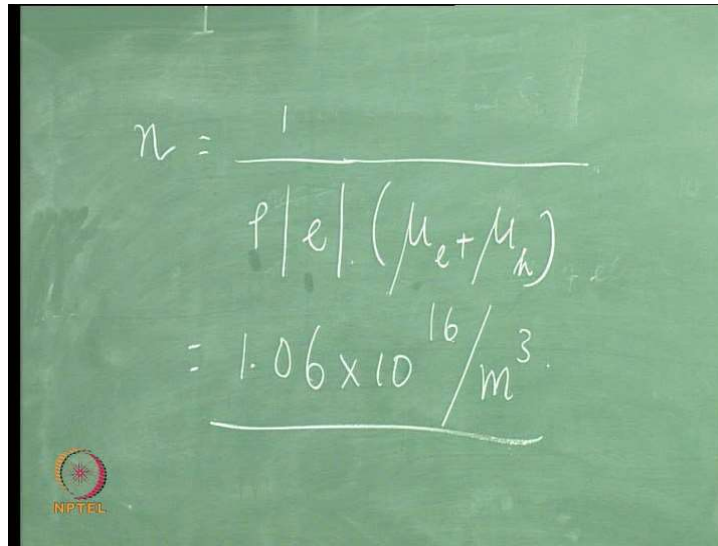 n = 1 / ρ|e|.(μe + μh)
= 1.06 × 10^16 / m^3.
NPTEL